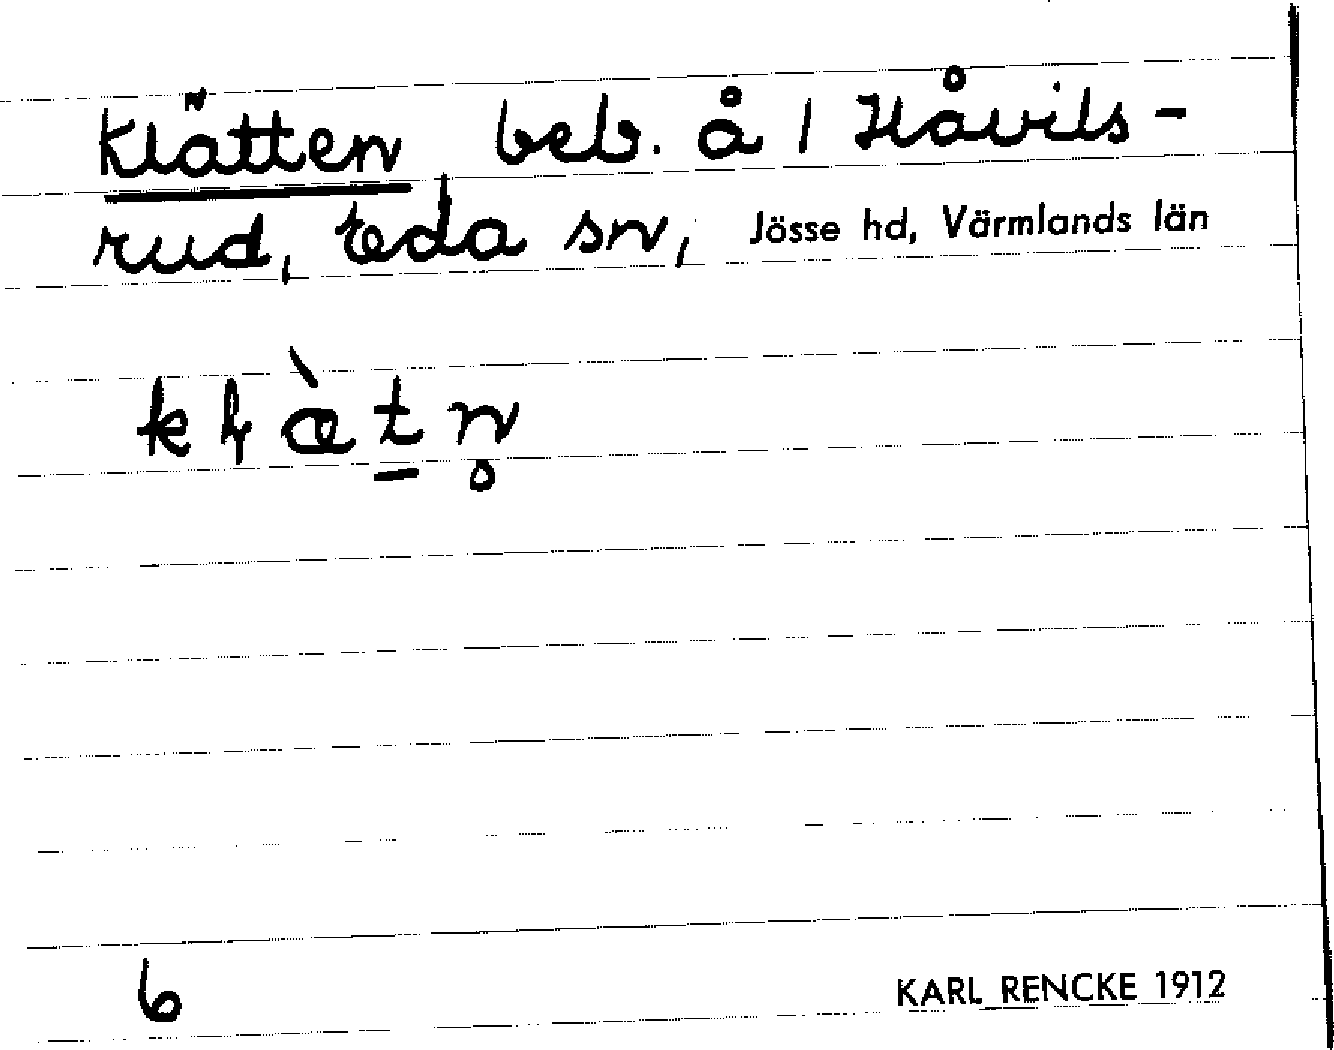 Klätten beb. å 1 Håvils-
rud, Eda sn, Jösse hd, Värmlands län
kɽæ̀tn̥
6
KARL RENCKE 1912